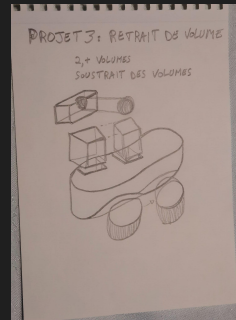 PROJET 3: RETRAIT DE VOLUME
2,+ VOLUMES
SOUSTRAIT DES VOLUMES